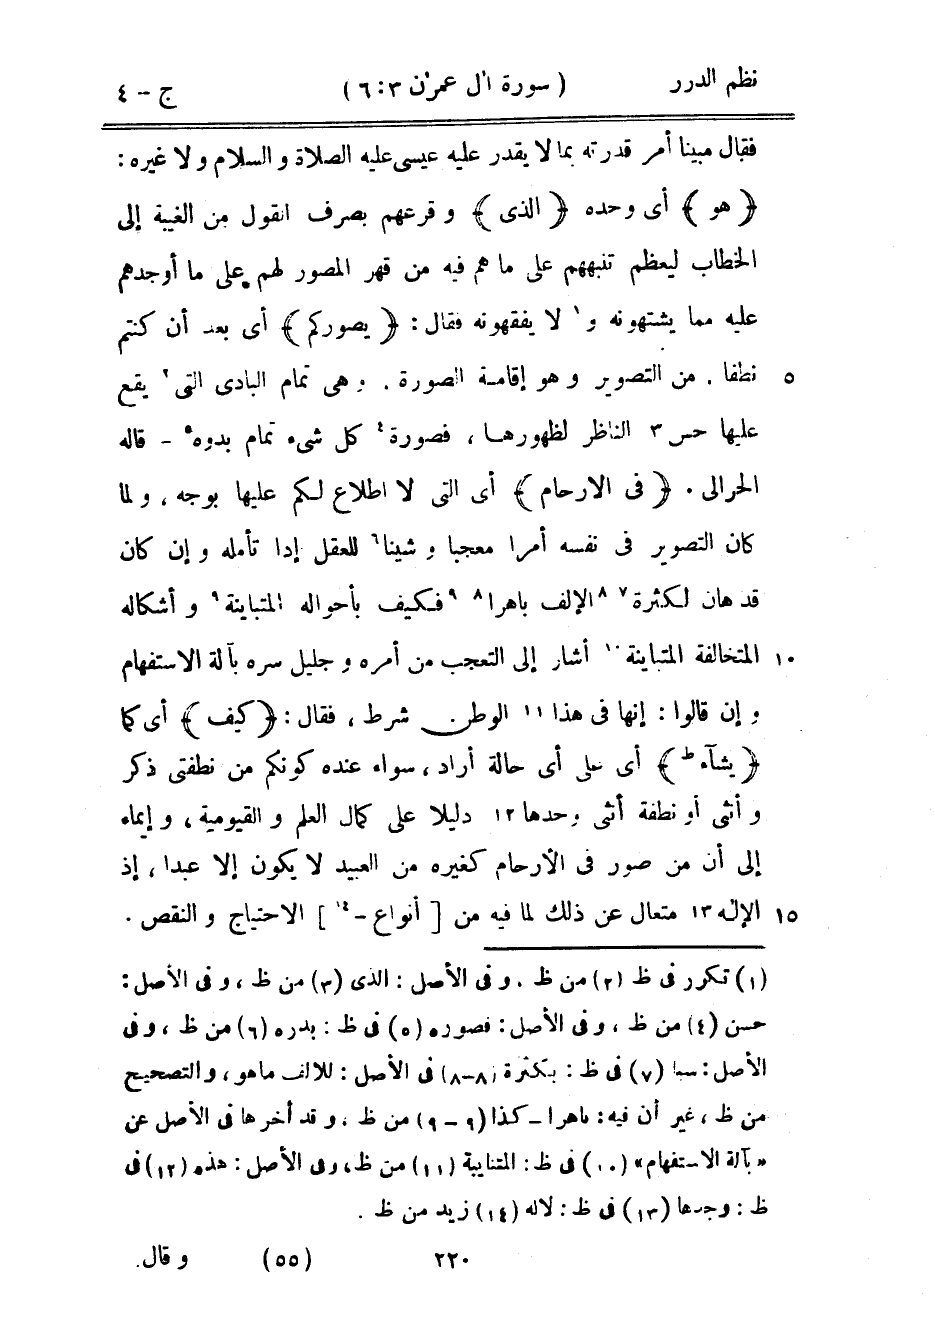 نظم الدرر ( سورة اٰل عمرٰن ٣ : ٦ ) ج - ٤
فقال مبينا أمر قدرته بما لا يقدر عليه عيسى عليه الصلاة و السلام و لا غيره :
﴿ هو ﴾ أى وحده ﴿ الذى ﴾ و قرعهم بصرف القول من الغيبة إلى
الخطاب ليعظم تنبههم على ما هم فيه من قهر المصور لهم على ما أوجدهم
عليه مما يشتهونه و١ لا يفقهونه فقال : ﴿ يصوركم ﴾ أى بعد أن كنتم
٥ نطفا . من التصوير و هو إقامة الصورة . و هى تمام البادى التى٢ يقع
عليها حس ٣ الناظر لظهورها ، فصورة٤ كل شىء تمام بدوه٥ - قاله
الحرالى . ﴿ فى الارحام ﴾ أى التى لا اطلاع لكم عليها بوجه ، و لما
كان التصوير فى نفسه أمرا معجبا و شينا٦ للعقل إذا تأمله و إن كان
قد هان لكثرة٧ ٨الإلف باهرا٨ ٩فكيف بأحواله المتباينة٩ و أشكاله
١٠ المتخالفة المتباينة١٠ أشار إلى التعجب من أمره و جليل سره بآلة الاستفهام
و إن قالوا : إنها فى هذا ١١ الوطن شرط ، فقال : ﴿ كيف ﴾ أى كما
﴿ يشآء ط ﴾ أى على أى حالة أراد ، سواء عنده كونكم من نطفتى ذكر
و أنثى أو نطفة أنثى وحدها ١٢ دليلا على كمال العلم و القيومية ، و إيماء
إلى أن من صور فى الأرحام كغيره من العبيد لا يكون إلا عبدا ، إذ
١٥ الإله ١٣ متعال عن ذلك لما فيه من [ أنواع -١٤ ] الاحتياج و النقص .
(١) تكرر فى ظ (٢) من ظ . و فى الأصل : الذى (٣) من ظ ، و فى الأصل :
حسن (٤) من ظ ، و فى الأصل : فصوره (٥) فى ظ : بدره (٦) من ظ ، و فى
الأصل : سبا (٧) فى ظ : بكثرة (٨-٨) فى الأصل : للالف ماهو ، و التصحيح
من ظ ، غير أن فيه : ماهرا - كذا (٩ - ٩) من ظ ، و قد أخرها فى الأصل عن
« بآلة الاستفهام » (١٠) فى ظ : المتنايبة (١١) من ظ ، و فى الأصل : هذه (١٢) فى
ظ : وجدها (١٣) فى ظ : لاله (١٤) زيد من ظ .
٢٢٠ (٥٥) و قال